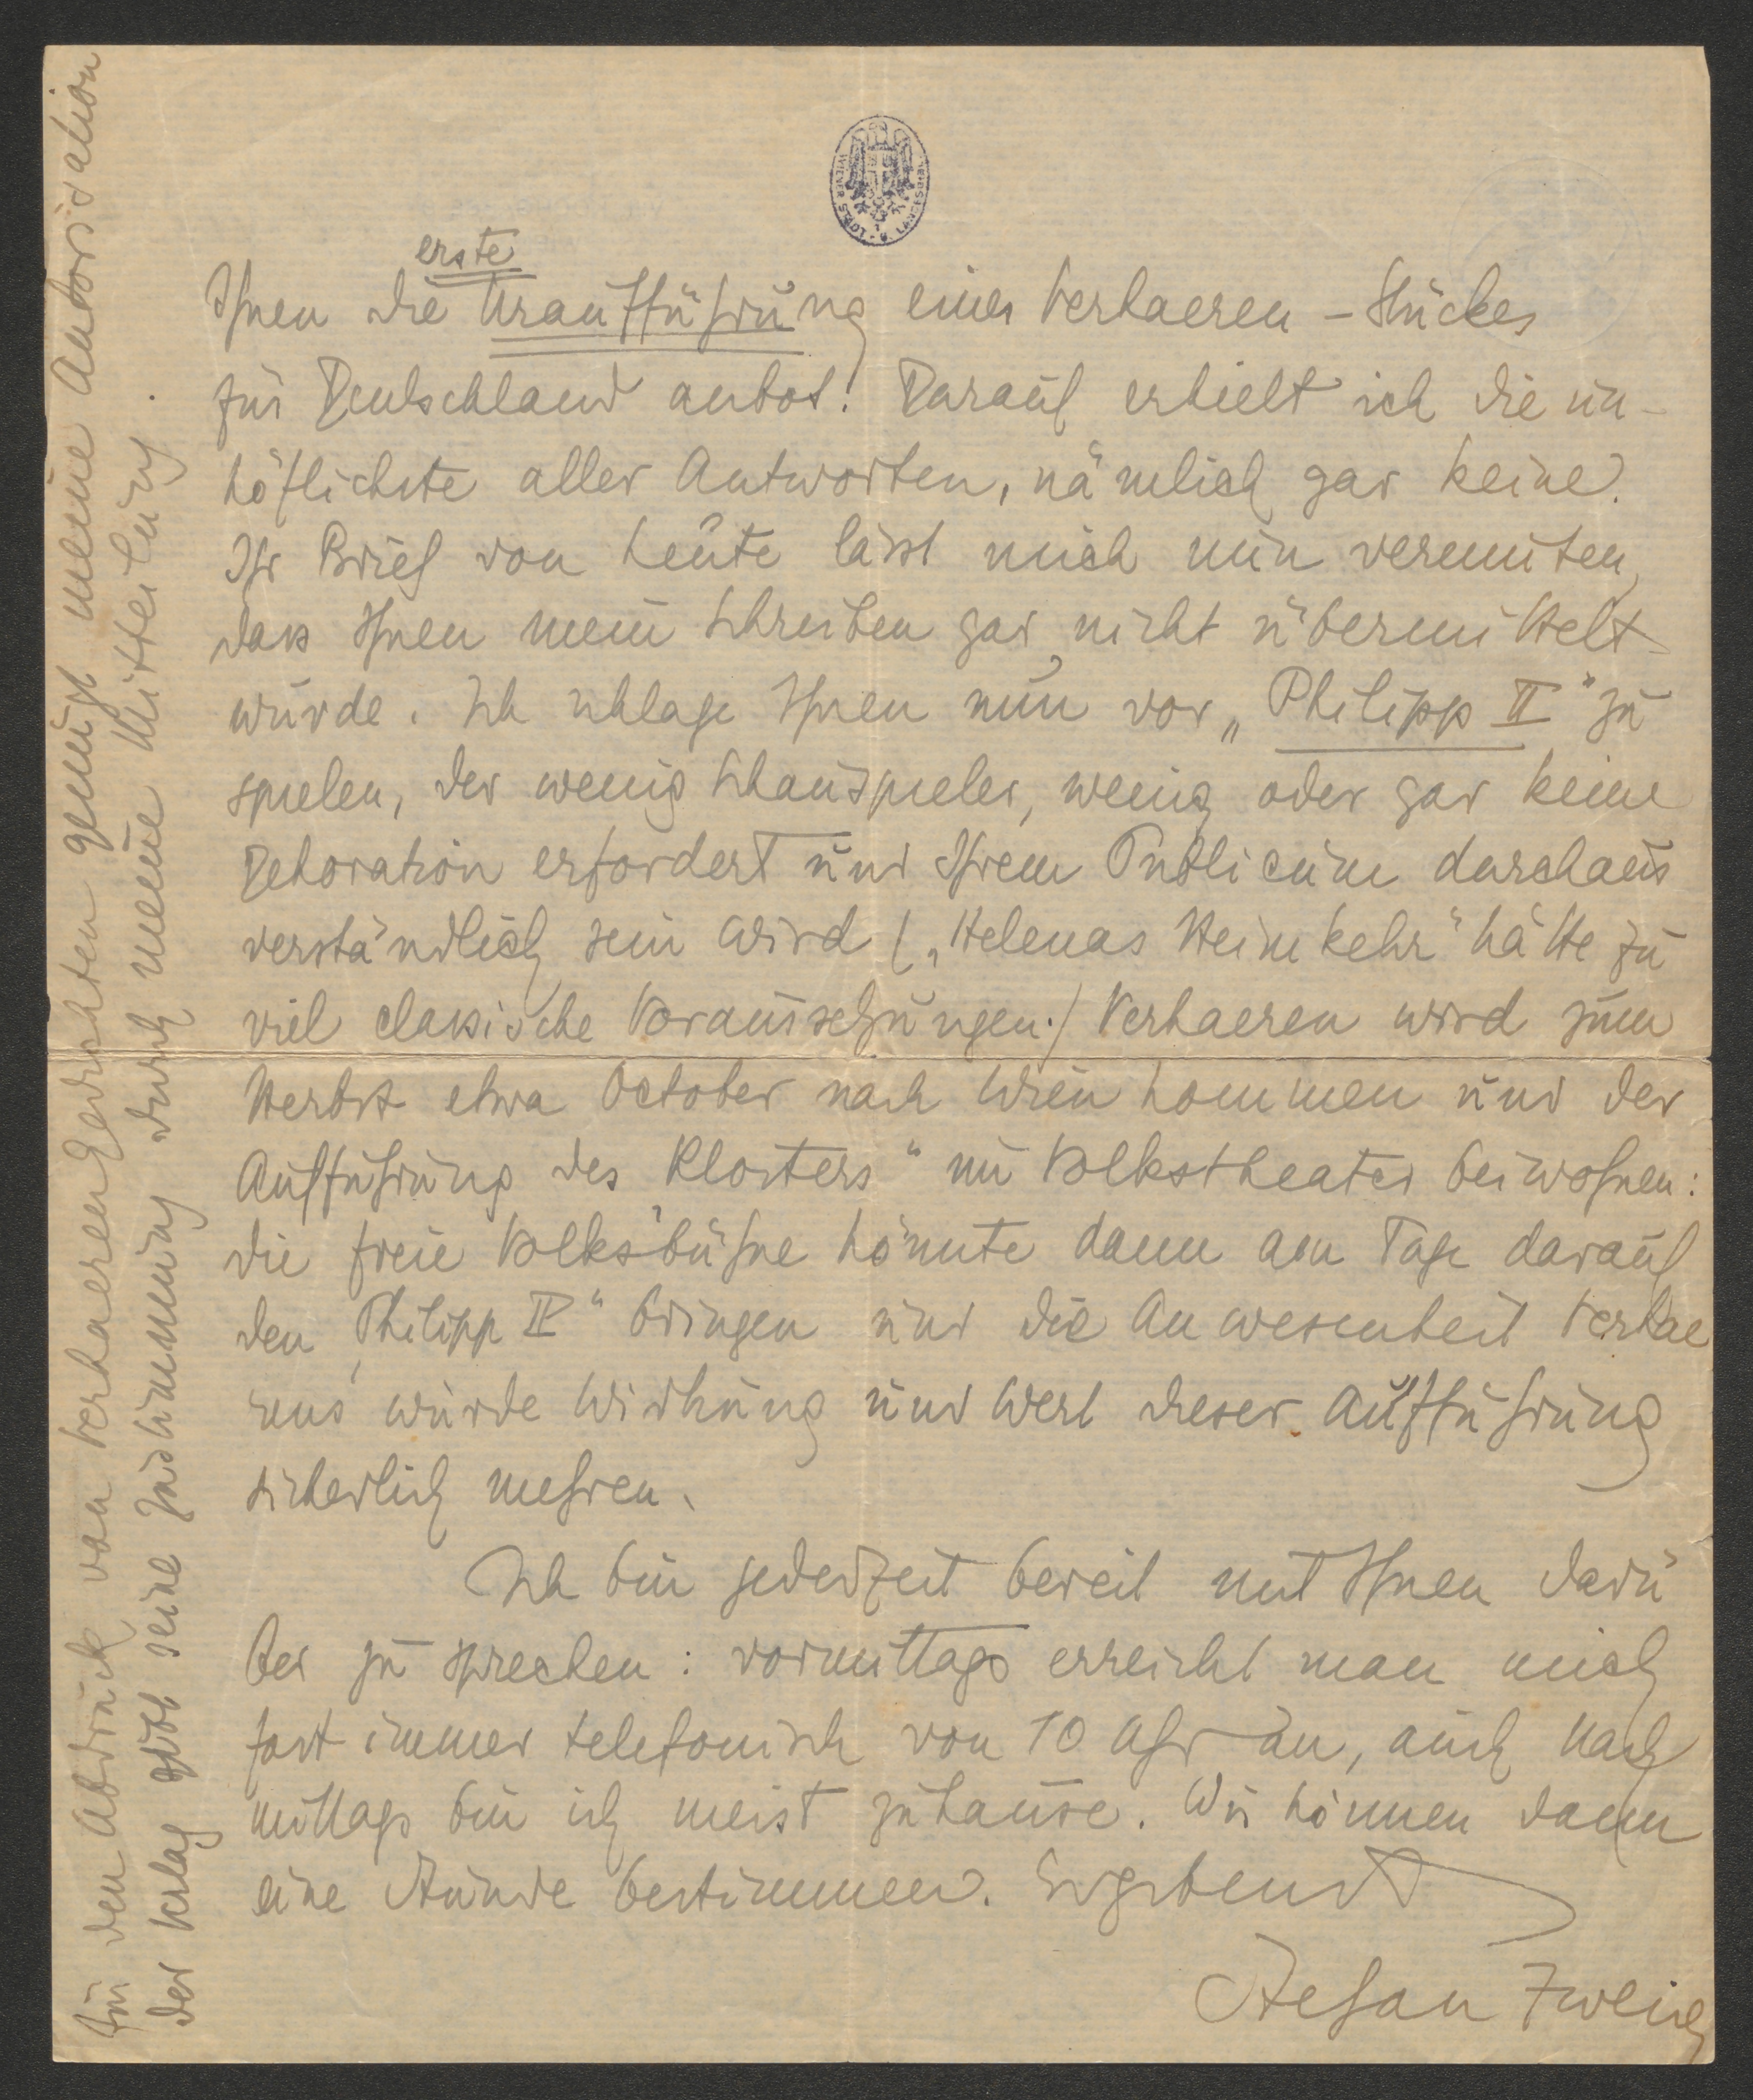 erste
Ihnen die Uraufführung eines Verhaeren-Stückes
für Deutschland anbot! Darauf erhielt ich die un-
höflichste aller Antworten, nämlich gar keine.
Ihr Brief von heute lässt mich nun vermuten,
dass Ihnen mein Schreiben gar nicht übermittelt
wurde. Ich schlage Ihnen nun vor „Philipp II" zu
spielen, der wenig Schauspieler, wenig oder gar keine
Dekoration erfordert und Ihrem Publicum durchaus
verständlich sein wird („Helenas Heimkehr" hätte zu
viel classische Voraussetzungen.) Verhaeren wird zum
Herbst etwa October nach Wien kommen und der
Aufführung des Klosters" im Volkstheater beiwohnen:
die freie Volksbühne könnte dann am Tage darauf
den „Philipp II" bringen und die Anwesenheit Verhae
rens würde Wirkung und Wert dieser Aufführung
sicherlich mehren.
Ich bin jederzeit bereit mit Ihnen darü
ber zu sprechen: vormittags erreicht man mich
fast immer telefonisch von 10 Uhr an, auch Nach
mittags bin ich meist zuhause. Wir können dann
eine Stunde bestimmen. Ergebenst
Stefan Zweig
Für den Abdruck von Verhaeren Gedichten genügt meine Autorisation
der Verlag gibt seine Zustimmung durch meine Mitteilung.
WIENER STADT- U. LANDESBIBL.